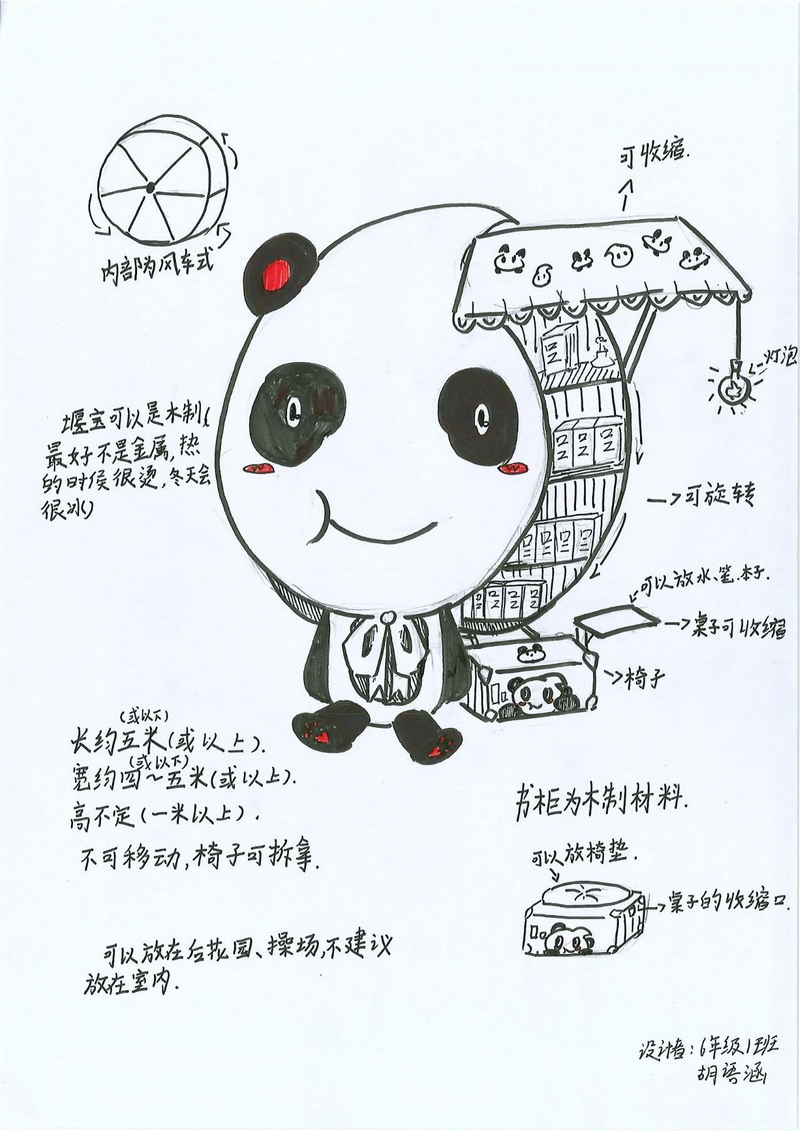 可收缩.
内部为风车式
灯泡
堰宝可以是木制(
最好不是金属,热
的时侯很烫,冬天会
很冰)
可旋转
可以放水、笔.本子.
桌子可收缩
椅子
(或以下)
长约五米(或以上).
(或以下)
宽约四~五米(或以上).
高不定(一米以上).
不可移动,椅子可拆拿.
书柜为木制材料.
可以放椅垫.
桌子的收缩口.
可以放在后花园、操场,不建议
放在室内.
设计者:6年级1班
胡语涵